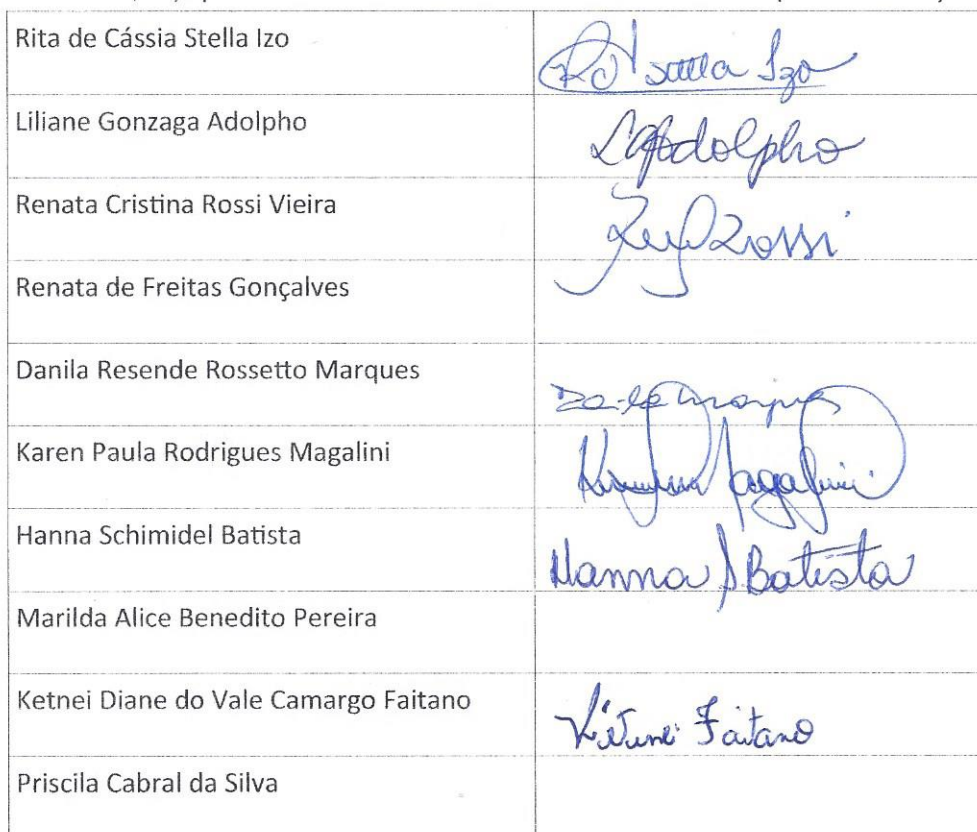 Rita de Cássia Stella Izo
Stella Izo
Liliane Gonzaga Adolpho
LGAdolpho
Renata Cristina Rossi Vieira
Rossi
Renata de Freitas Gonçalves
Danila Resende Rossetto Marques
Karen Paula Rodrigues Magalini
Magalini
Hanna Schimidel Batista
Hanna S Batista
Marilda Alice Benedito Pereira
Ketnei Diane do Vale Camargo Faitano
Ketnei Faitano
Priscila Cabral da Silva